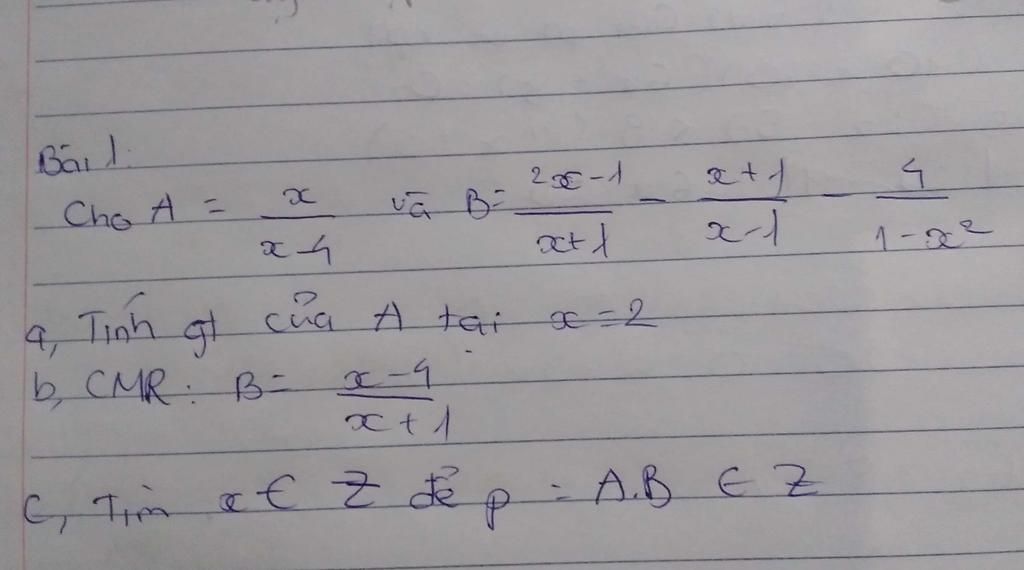 Bài 1:
Cho A = x/(x-4) và B = (2x-1)/(x+1) - (x+1)/(x-1) - 4/(1-x²)
a, Tính gt của A tại x=2
b, CMR: B = (x-4)/(x+1)
c, Tìm x ∈ Z để p = A.B ∈ Z